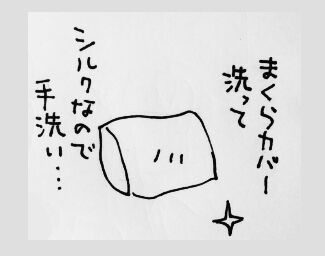 まくらカバー
洗って
シルクなので
手洗い…